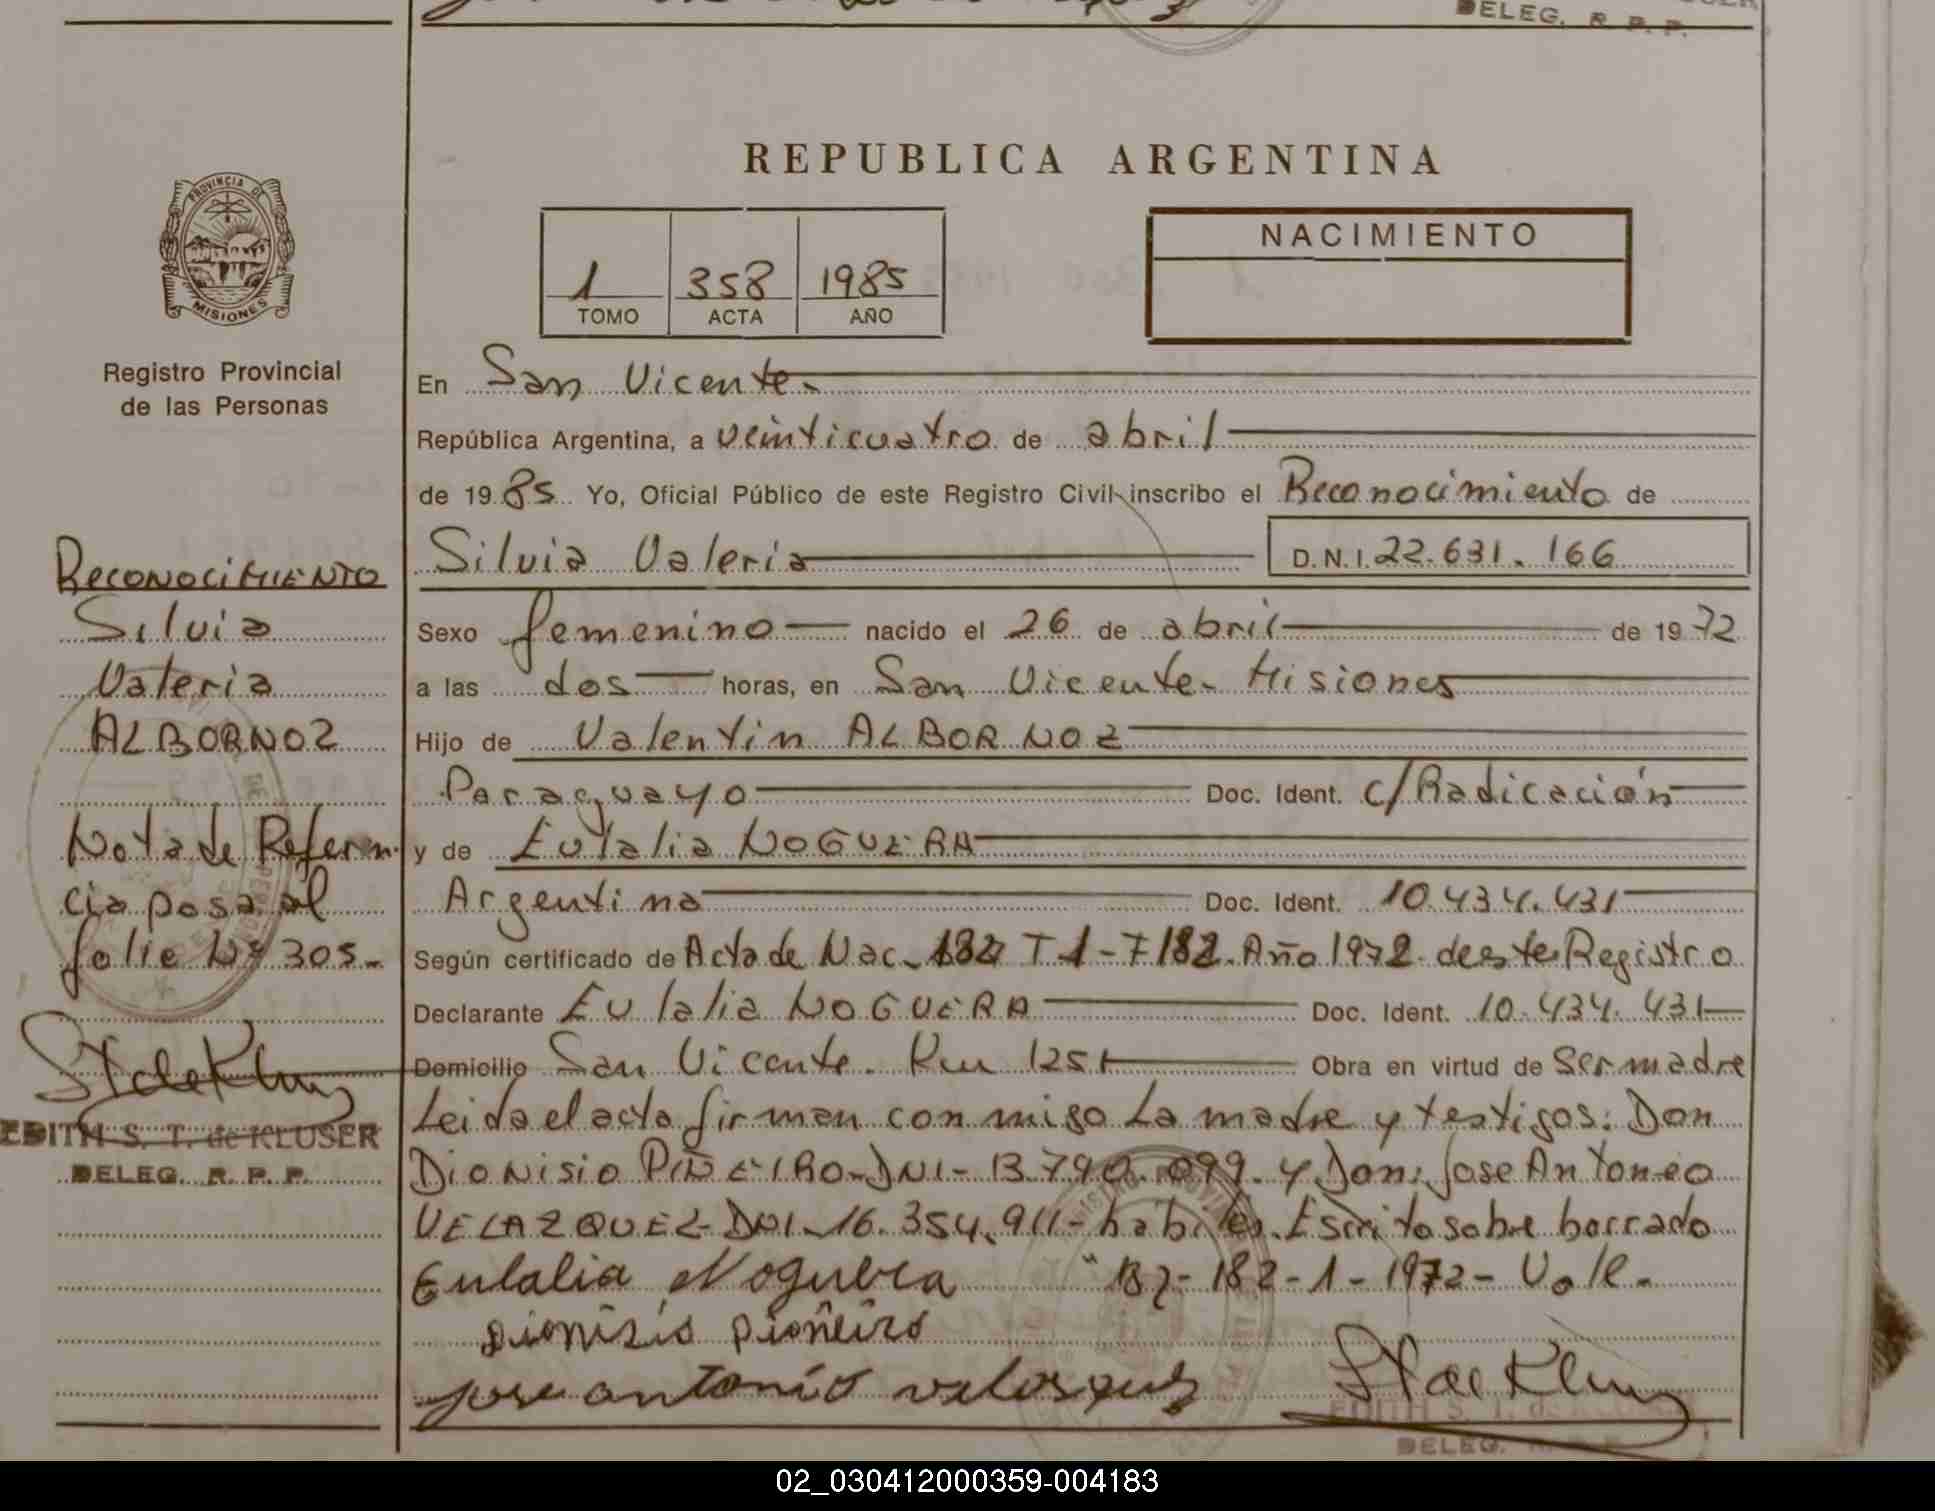 DELEG. R. P. P.
REPUBLICA ARGENTINA
PROVINCIA DE
MISIONES
1 358 1985
TOMO ACTA AÑO
NACIMIENTO
Registro Provincial
de las Personas
En San Vicente.
República Argentina, a veinticuatro de abril
de 1985 Yo, Oficial Público de este Registro Civil inscribo el Reconocimiento de
Silvia Valeria D.N.I. 22.631.166
Sexo femenino nacido el 26 de abril de 1972
a las dos horas, en San Vicente - Misiones
Hijo de Valentin ALBORNOZ
Paraguayo Doc. Ident. c/Radicación
y de Eulalia NOGUERA
Argentina Doc. Ident. 10.434.431
Según certificado de Acta de Nac. T 1 - F 182. Año 1972 de este Registro
Declarante Eulalia NOGUERA Doc. Ident. 10.434.431
Domicilio San Vicente. Km 1251 Obra en virtud de Ser madre
Leida el acta firman con migo La madre y testigos: Don
Dionisio PIÑEIRO - DNI - 13.790.099. y Don: Jose Antonio
VELAZQUEZ - DNI - 16.354.911 - habiles. Escrito sobre borrado
Eulalia Noguera - 182 - 1 - 1972 - Vale.
Dionisio piñeiro
jose antonio velosquez
EDITH S. T. de KLUSER
DELEG. R. P. P.
RECONOCIMIENTO
Silvia
Valeria
ALBORNOZ
Nota de Referen-
cia posa al
folio Nº 305-
EDITH S. T. de KLUSER
DELEG. R. P. P.
02_030412000359-004183